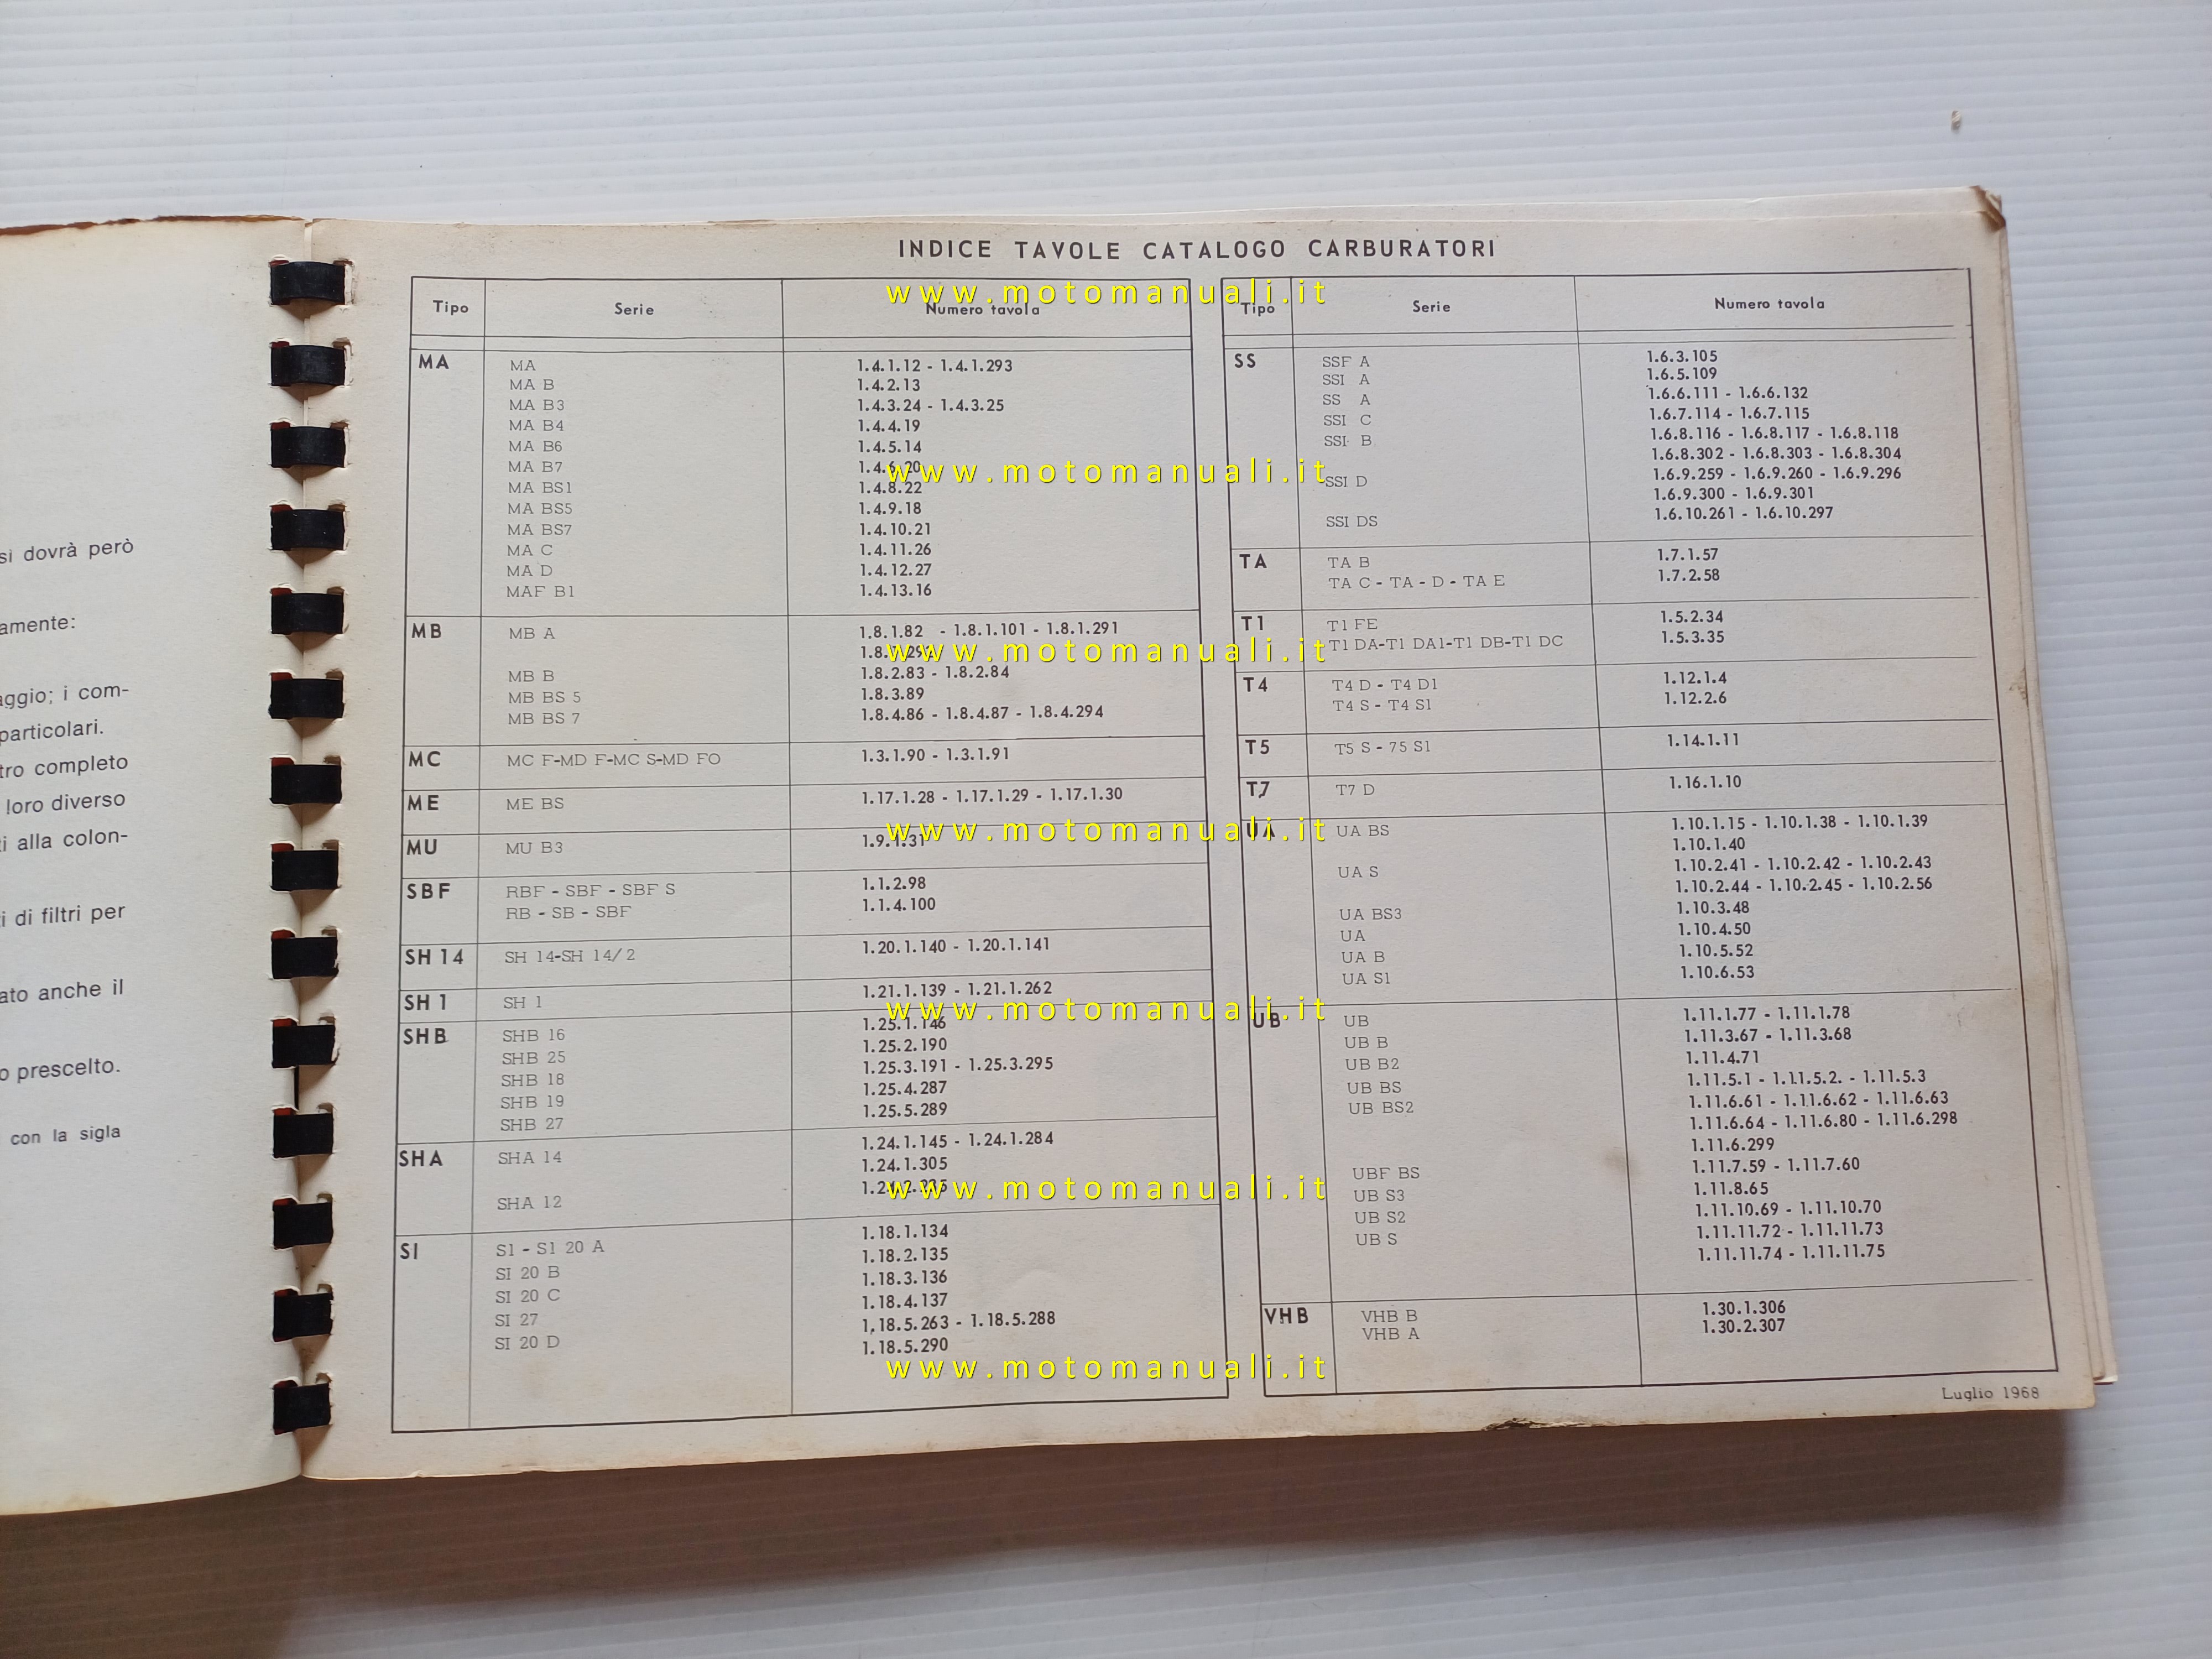 si dovrà però
amente:
aggio; i com-
particolari.
tro completo
loro diverso
ti alla colon-
ti di filtri per
ato anche il
o prescelto.
con la sigla
INDICE TAVOLE CATALOGO CARBURATORI
Tipo Serie Numero tavola
MA MA 1.4.1.12 - 1.4.1.293
MA B 1.4.2.13
MA B3 1.4.3.24 - 1.4.3.25
MA B4 1.4.4.19
MA B6 1.4.5.14
MA B7 1.4.6.20
MA BS1 1.4.8.22
MA BS5 1.4.9.18
MA BS7 1.4.10.21
MA C 1.4.11.26
MA D 1.4.12.27
MAF B1 1.4.13.16
MB MB A 1.8.1.82 - 1.8.1.101 - 1.8.1.291
MB B 1.8.2.83 - 1.8.2.84
MB BS 5 1.8.3.89
MB BS 7 1.8.4.86 - 1.8.4.87 - 1.8.4.294
MC MC F-MD F-MC S-MD FO 1.3.1.90 - 1.3.1.91
ME ME BS 1.17.1.28 - 1.17.1.29 - 1.17.1.30
MU MU B3 1.9.1.31
SBF RBF - SBF - SBF S 1.1.2.98
RB - SB - SBF 1.1.4.100
SH 14 SH 14-SH 14/2 1.20.1.140 - 1.20.1.141
SH 1 SH 1 1.21.1.139 - 1.21.1.262
SHB SHB 16 1.25.1.146
SHB 25 1.25.2.190
SHB 18 1.25.3.191 - 1.25.3.295
SHB 19 1.25.4.287
SHB 27 1.25.5.289
SHA SHA 14 1.24.1.145 - 1.24.1.284
1.24.1.305
SHA 12
SI S1 - S1 20 A 1.18.1.134
SI 20 B 1.18.2.135
SI 20 C 1.18.3.136
SI 27 1.18.4.137
SI 20 D 1.18.5.263 - 1.18.5.288
1.18.5.290
Tipo Serie Numero tavola
SS SSF A 1.6.3.105
SSI A 1.6.5.109
SS A 1.6.6.111 - 1.6.6.132
SSI C 1.6.7.114 - 1.6.7.115
SSI B 1.6.8.116 - 1.6.8.117 - 1.6.8.118
1.6.8.302 - 1.6.8.303 - 1.6.8.304
SSI D 1.6.9.259 - 1.6.9.260 - 1.6.9.296
1.6.9.300 - 1.6.9.301
SSI DS 1.6.10.261 - 1.6.10.297
TA TA B 1.7.1.57
TA C - TA - D - TA E 1.7.2.58
T1 T1 FE 1.5.2.34
T1 DA-T1 DA1-T1 DB-T1 DC 1.5.3.35
T4 T4 D - T4 D1 1.12.1.4
T4 S - T4 S1 1.12.2.6
T5 T5 S - 75 S1 1.14.1.11
T7 T7 D 1.16.1.10
UA UA BS 1.10.1.15 - 1.10.1.38 - 1.10.1.39
1.10.1.40
UA S 1.10.2.41 - 1.10.2.42 - 1.10.2.43
1.10.2.44 - 1.10.2.45 - 1.10.2.56
UA BS3 1.10.3.48
UA 1.10.4.50
UA B 1.10.5.52
UA S1 1.10.6.53
UB UB 1.11.1.77 - 1.11.1.78
UB B 1.11.3.67 - 1.11.3.68
UB B2 1.11.4.71
UB BS 1.11.5.1 - 1.11.5.2. - 1.11.5.3
UB BS2 1.11.6.61 - 1.11.6.62 - 1.11.6.63
1.11.6.64 - 1.11.6.80 - 1.11.6.298
1.11.6.299
UBF BS 1.11.7.59 - 1.11.7.60
UB S3 1.11.8.65
UB S2 1.11.10.69 - 1.11.10.70
UB S 1.11.11.72 - 1.11.11.73
1.11.11.74 - 1.11.11.75
VHB VHB B 1.30.1.306
VHB A 1.30.2.307
Luglio 1968
www.motomanuali.it
www.motomanuali.it
www.motomanuali.it
www.motomanuali.it
www.motomanuali.it
www.motomanuali.it
www.motomanuali.it